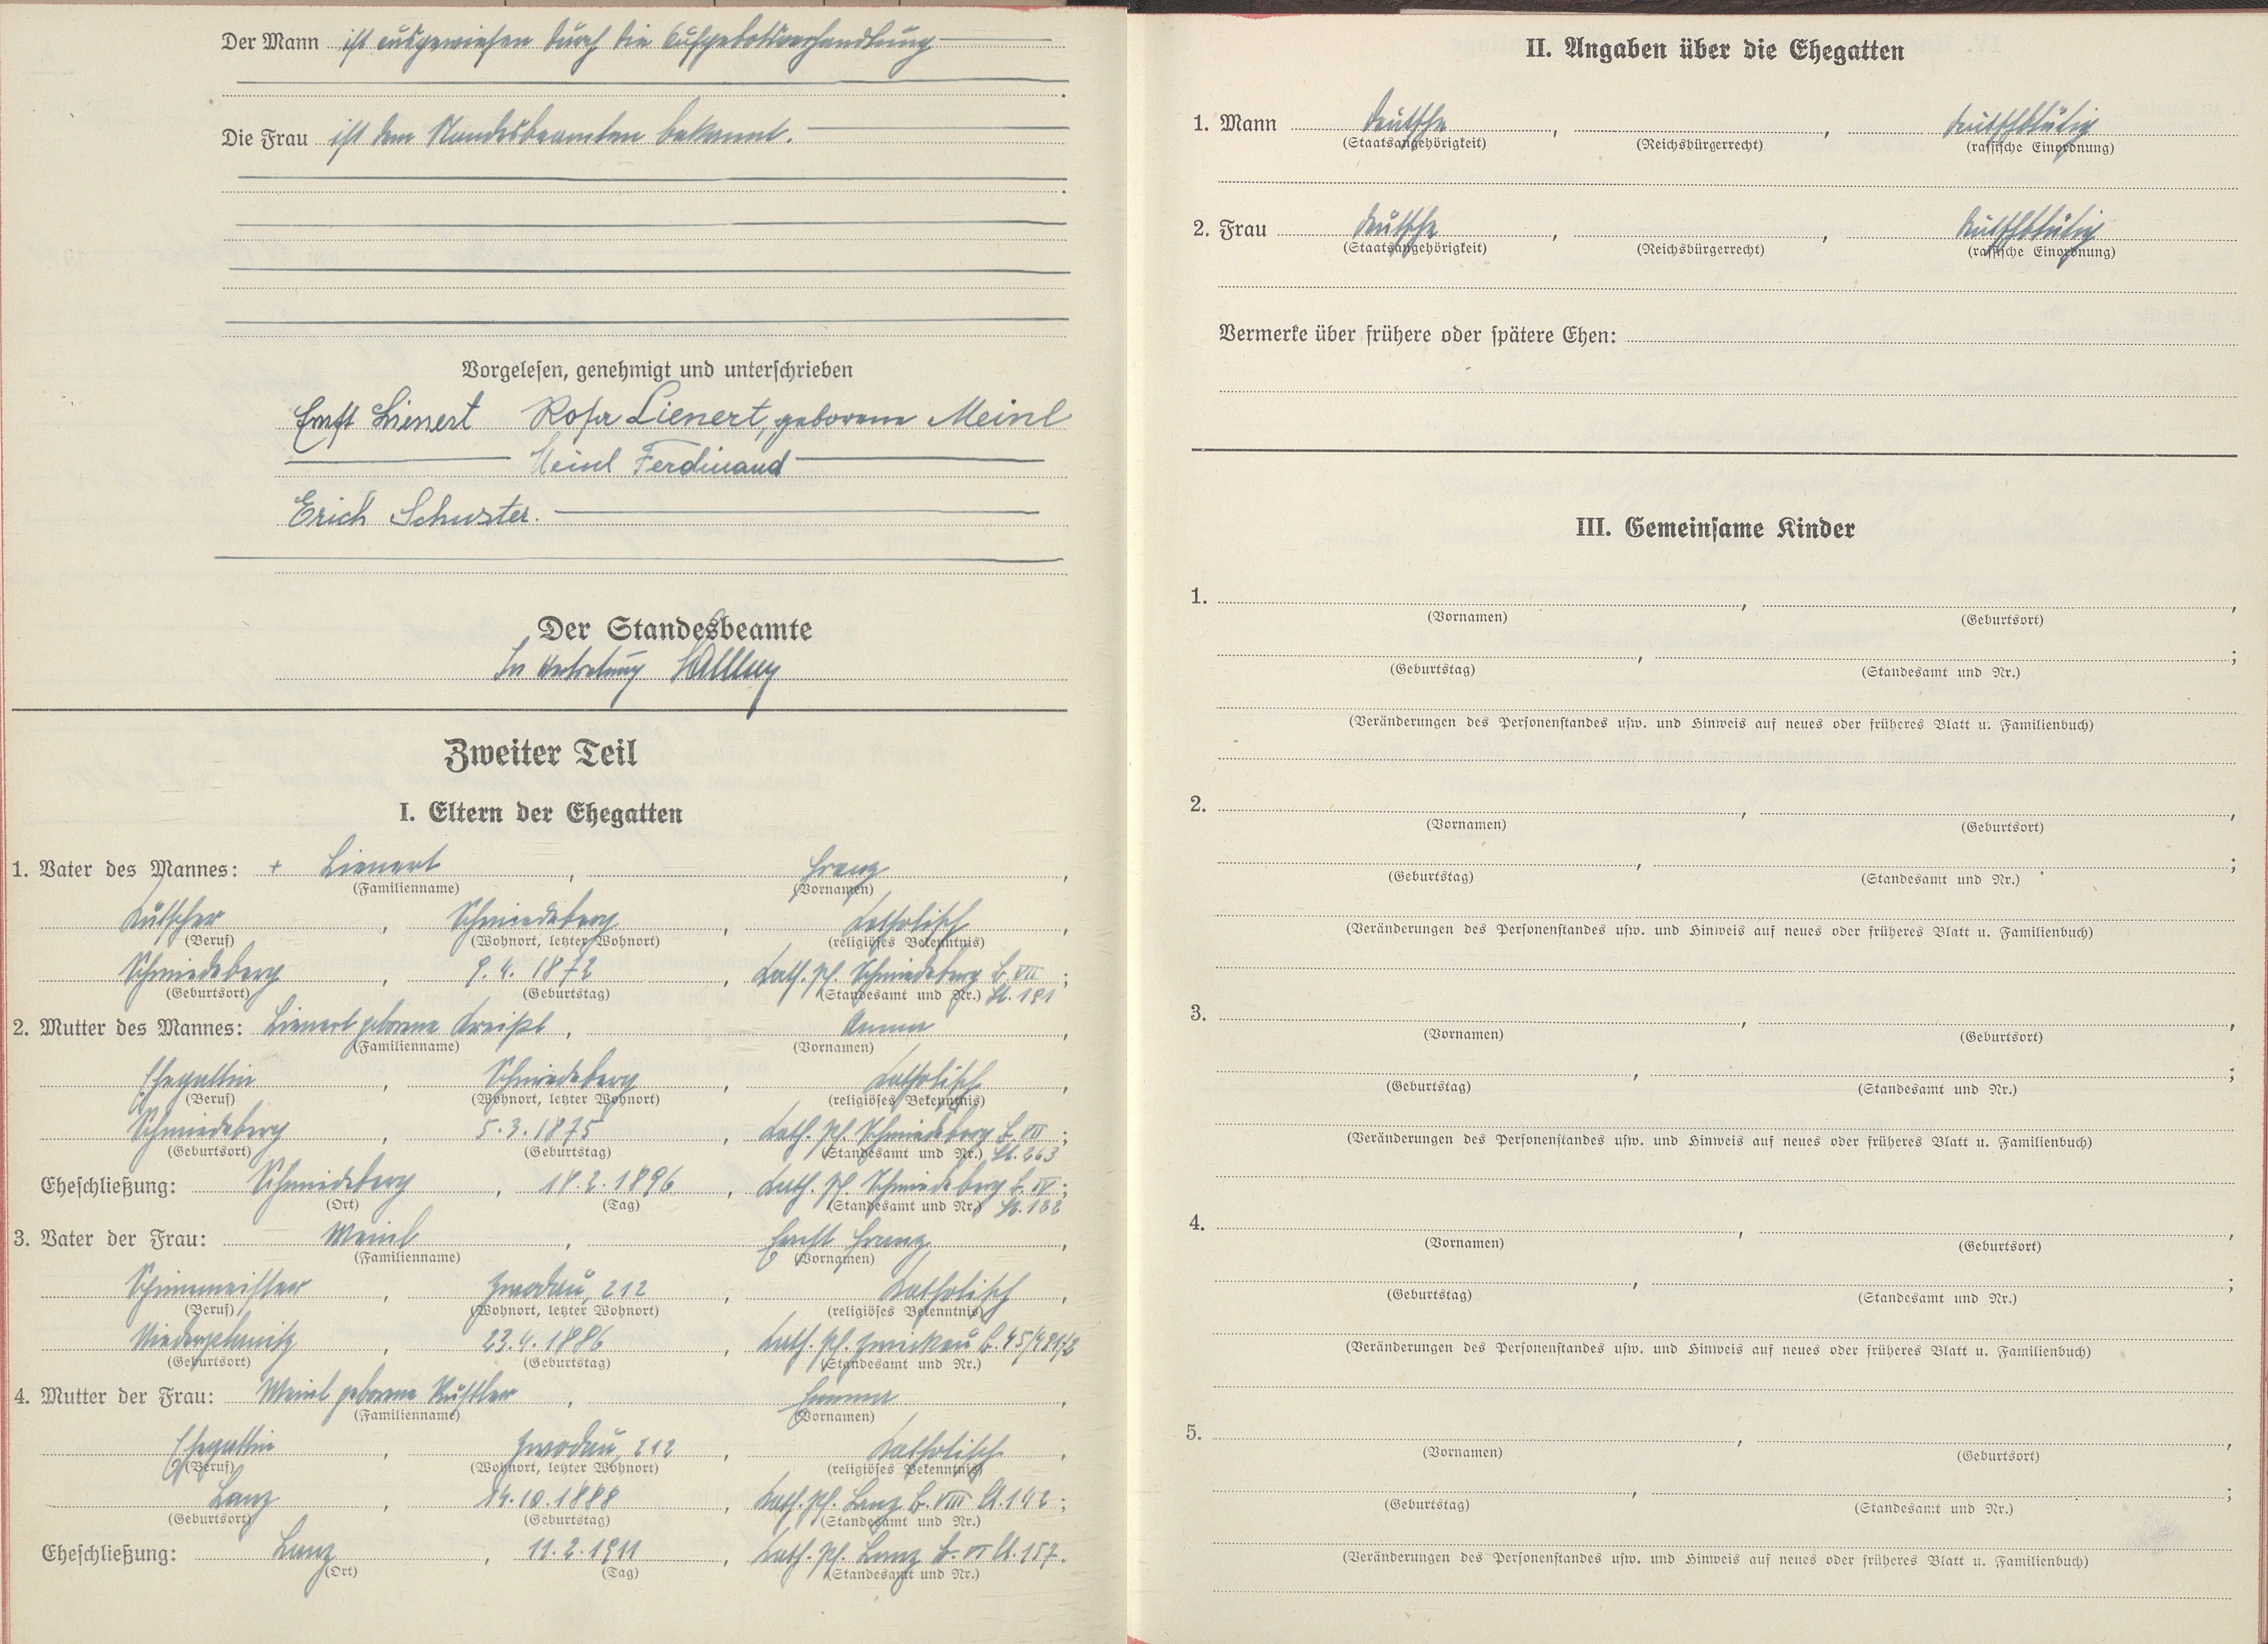 Der Mann ist ausgewiesen durch die Aufgebotsverhandlung
Die Frau ist dem Standesbeamten bekannt.
Vorgelesen, genehmigt und unterschrieben
Ernst Lienert Rosa Lienert, geborene Meinl
Meinl Ferdinand
Erich Schuster.
Der Standesbeamte
In Vertretung
Zweiter Teil
I. Eltern der Ehegatten
1. Vater des Mannes: + Lienert, Franz,
(Familienname) (Vornamen)
Kutscher, Schmiedeberg, katholisch,
(Beruf) (Wohnort, letzter Wohnort) (religiöses Bekenntnis)
Schmiedeberg, 9.4.1872, kath. Pf. Schmiedeberg B. VII;
(Geburtsort) (Geburtstag) (Standesamt und Nr.) Bl. 191
2. Mutter des Mannes: Lienert geborene Kreißl, Anna,
(Familienname) (Vornamen)
Ehegattin, Schmiedeberg, katholisch,
(Beruf) (Wohnort, letzter Wohnort) (religiöses Bekenntnis)
Schmiedeberg, 5.3.1875, kath. Pf. Schmiedeberg B. VII;
(Geburtsort) (Geburtstag) (Standesamt und Nr.) Bl. 263
Eheschließung: Schmiedeberg, 18.2.1896, kath. Pf. Schmiedeberg B. IV;
(Ort) (Tag) (Standesamt und Nr.)
3. Vater der Frau: Meinl, Ernst Franz,
(Familienname) (Vornamen)
Zwodau, 212, katholisch,
(Beruf) (Wohnort, letzter Wohnort) (religiöses Bekenntnis)
23.4.1886, kath. Pf.
(Geburtsort) (Geburtstag) (Standesamt und Nr.)
4. Mutter der Frau: Meinl geborene, Emma,
(Familienname) (Vornamen)
Ehegattin, Zwodau, 212, katholisch,
(Beruf) (Wohnort, letzter Wohnort) (religiöses Bekenntnis)
Lanz, 14.10.1888, kath. Pf. Lanz B. VIII Bl. 142;
(Geburtsort) (Geburtstag) (Standesamt und Nr.)
Eheschließung: Lanz, 11.2.1911, kath. Pf. Lanz B. VI Bl. 157.
(Ort) (Tag) (Standesamt und Nr.)
II. Angaben über die Ehegatten
1. Mann deutsche, , deutschblütig
(Staatsangehörigkeit) (Reichsbürgerrecht) (rassische Einordnung)
2. Frau deutsche, , deutschblütig
(Staatsangehörigkeit) (Reichsbürgerrecht) (rassische Einordnung)
Vermerke über frühere oder spätere Ehen:
III. Gemeinsame Kinder
1. , ,
(Vornamen) (Geburtsort)
, ;
(Geburtstag) (Standesamt und Nr.)
(Veränderungen des Personenstandes usw. und Hinweis auf neues oder früheres Blatt u. Familienbuch)
2. , ,
(Vornamen) (Geburtsort)
, ;
(Geburtstag) (Standesamt und Nr.)
(Veränderungen des Personenstandes usw. und Hinweis auf neues oder früheres Blatt u. Familienbuch)
3. , ,
(Vornamen) (Geburtsort)
, ;
(Geburtstag) (Standesamt und Nr.)
(Veränderungen des Personenstandes usw. und Hinweis auf neues oder früheres Blatt u. Familienbuch)
4. , ,
(Vornamen) (Geburtsort)
, ;
(Geburtstag) (Standesamt und Nr.)
(Veränderungen des Personenstandes usw. und Hinweis auf neues oder früheres Blatt u. Familienbuch)
5. , ,
(Vornamen) (Geburtsort)
, ;
(Geburtstag) (Standesamt und Nr.)
(Veränderungen des Personenstandes usw. und Hinweis auf neues oder früheres Blatt u. Familienbuch)